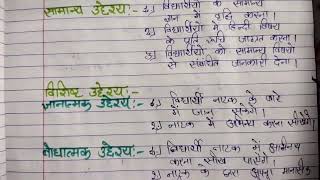 सामान्य उद्देश्य:- 1.) विद्यार्थीयों के सामान्य
ज्ञान में वृद्धि करना।
2.) विद्यार्थीयों में हिन्दी विषय
के प्रति रुचि जागृत करना।
3.) विद्यार्थीयों को सामान्य विषयों
से संबंधित जानकारी देना।
विशिष्ट उद्देश्य:-
ज्ञानात्मक उद्देश्य:- 1.) विद्यार्थी नाटक के बारे
में जान सकेंगे।
2.) नाटक में अभिनय करना सीखेंगे।
बोधात्मक उद्देश्य:- 1.) विद्यार्थी नाटक में अभिनय
करना सीख पाएंगे।
2.) नाटक के द्वारा अपना मानसिक